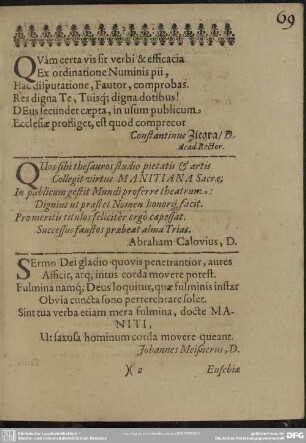 69
QUàm certa vis sit verbi & efficacia
Ex ordinatione Numinis pii,
Hac disputatione, Fautor, comprobas.
Res digna Te, Tuisq; digna dotibus!
DEus secundet cæpta, in usum publicum
Ecclesiæ profliget, est quod comprecor
Constantinus Ziegra/ D.
Acad. Rector.
QUos sibi thesauros studio pietatis & artis
Collegit virtus MANITIANA Sacræ;
In publicum gestit Mundi proferre theatrum:
Dignum ut præstet Nomen honoris facit.
Pro meritis titulos feliciter ergò capessat.
Successus faustos præbeat alma Trias.
Abraham Calovius, D.
SErmo Dei gladio quovis penetrantior, aures
Afficit, atq; intus corda movere potest.
Fulmina namq; Deus loquitur, quæ fulminis instar
Obvia cuncta sono perterebrare solet.
Sint tua verba etiam mera fulmina, docte MA-
NITI,
Ut saxosa hominum corda movere queant.
Johannes Meisnerus, D.
)( 2
Eusebiæ